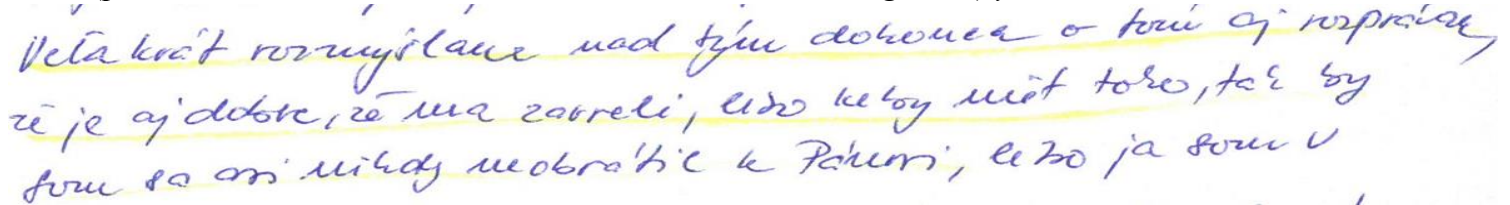 Veľa krát rozmýšlame nad tým dokonca o tom aj rozprávam,
že je aj dobre, že ma zavreli, lebo keby niet toho, tak by
som sa asi nikdy neobrátil k Pánovi, lebo ja som v